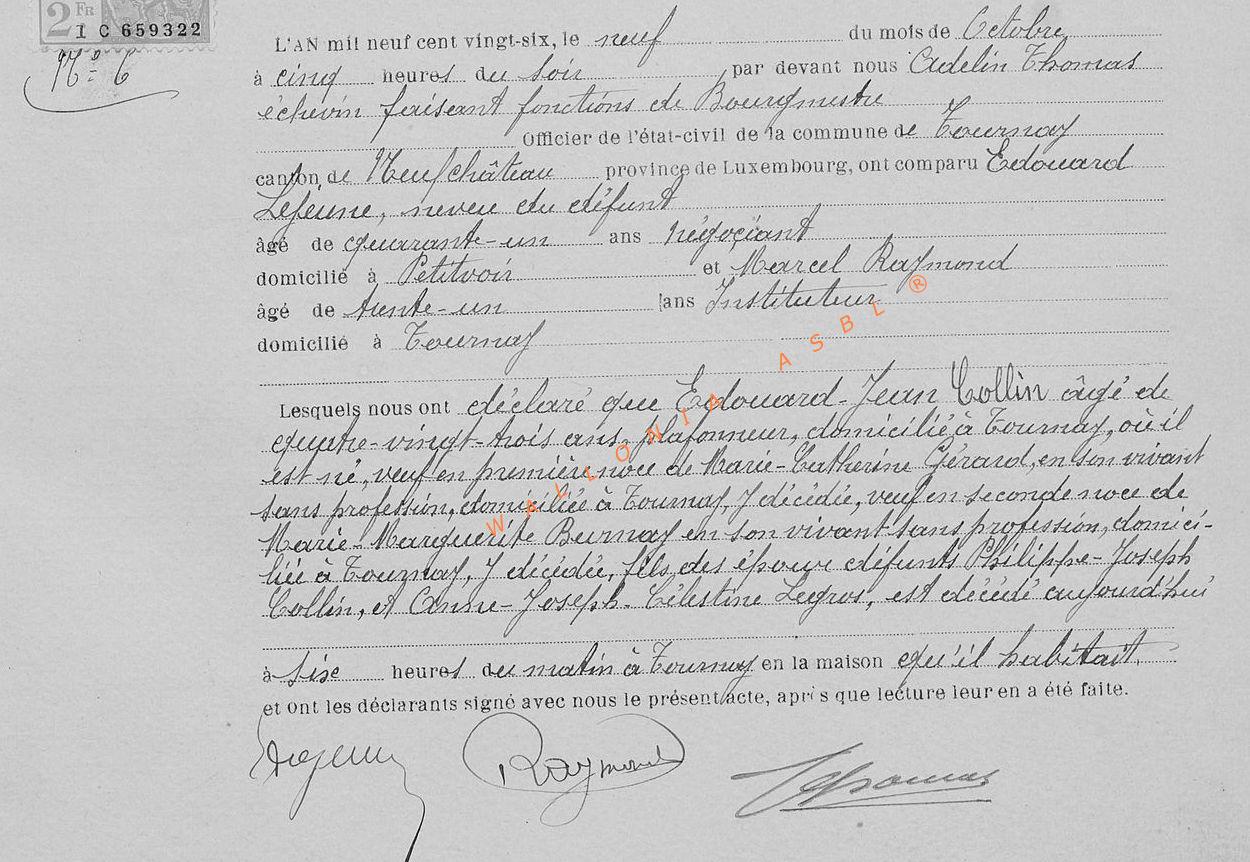 2 FR
1 C 659322
N° 6
L'AN mil neuf cent vingt-six, le neuf du mois de Octobre
à cinq heures du soir par devant nous Adelin Thomas
échevin faisant fonctions de Bourgmestre
Officier de l'état-civil de la commune de Tournay
canton de Neufchâteau province de Luxembourg, ont comparu Edouard
Lejeune, neveu du défunt
âgé de quarante-un ans négociant
domicilié à Petitvoir et Marcel Raymond
âgé de trente-un ans Instituteur
domicilié à Tournay
Lesquels nous ont déclaré que Edouard-Jean Collin âgé de
quatre-vingt-trois ans, plafonneur, domicilié à Tournay, où il
est né, veuf en première noce de Marie-Catherine Gérard, en son vivant
sans profession, domiciliée à Tournay, y décédée, veuf en seconde noce de
Marie-Marguerite Burnay en son vivant sans profession, domici-
liée à Tournay, y décédée, fils des époux défunts Philippe-Joseph
Collin, et Anne-Joseph-Célestine Legros, est décédé aujourd'hui
à six heures du matin à Tournay en la maison qu'il habitait.
et ont les déclarants signé avec nous le présent acte, après que lecture leur en a été faite.
Lejeune Raymond Thomas
WALLONIA ASBL ®